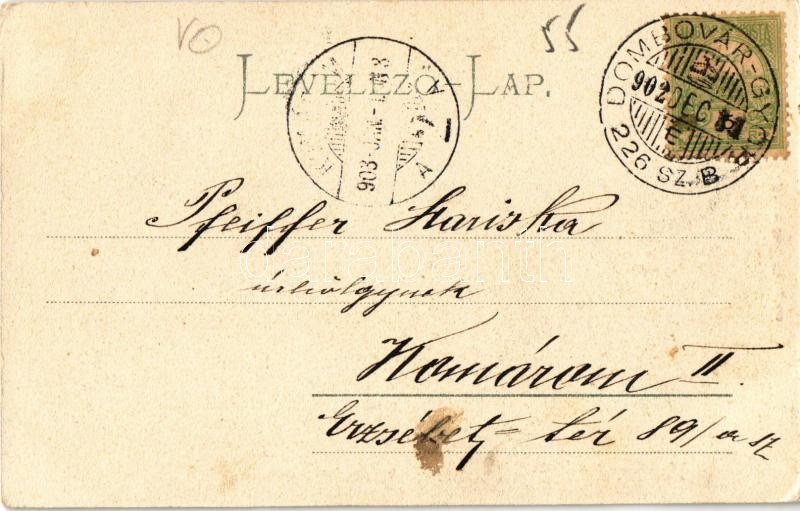 55
LEVELEZŐ-LAP.
DOMBOVÁR-GYŐR
902 DEC 31
E
226 SZ. B
903 JAN
A
Pfeiffer Mariska
úrhölgynek
Komárom II.
Erzsébet-tér 89/a sz
darabanth